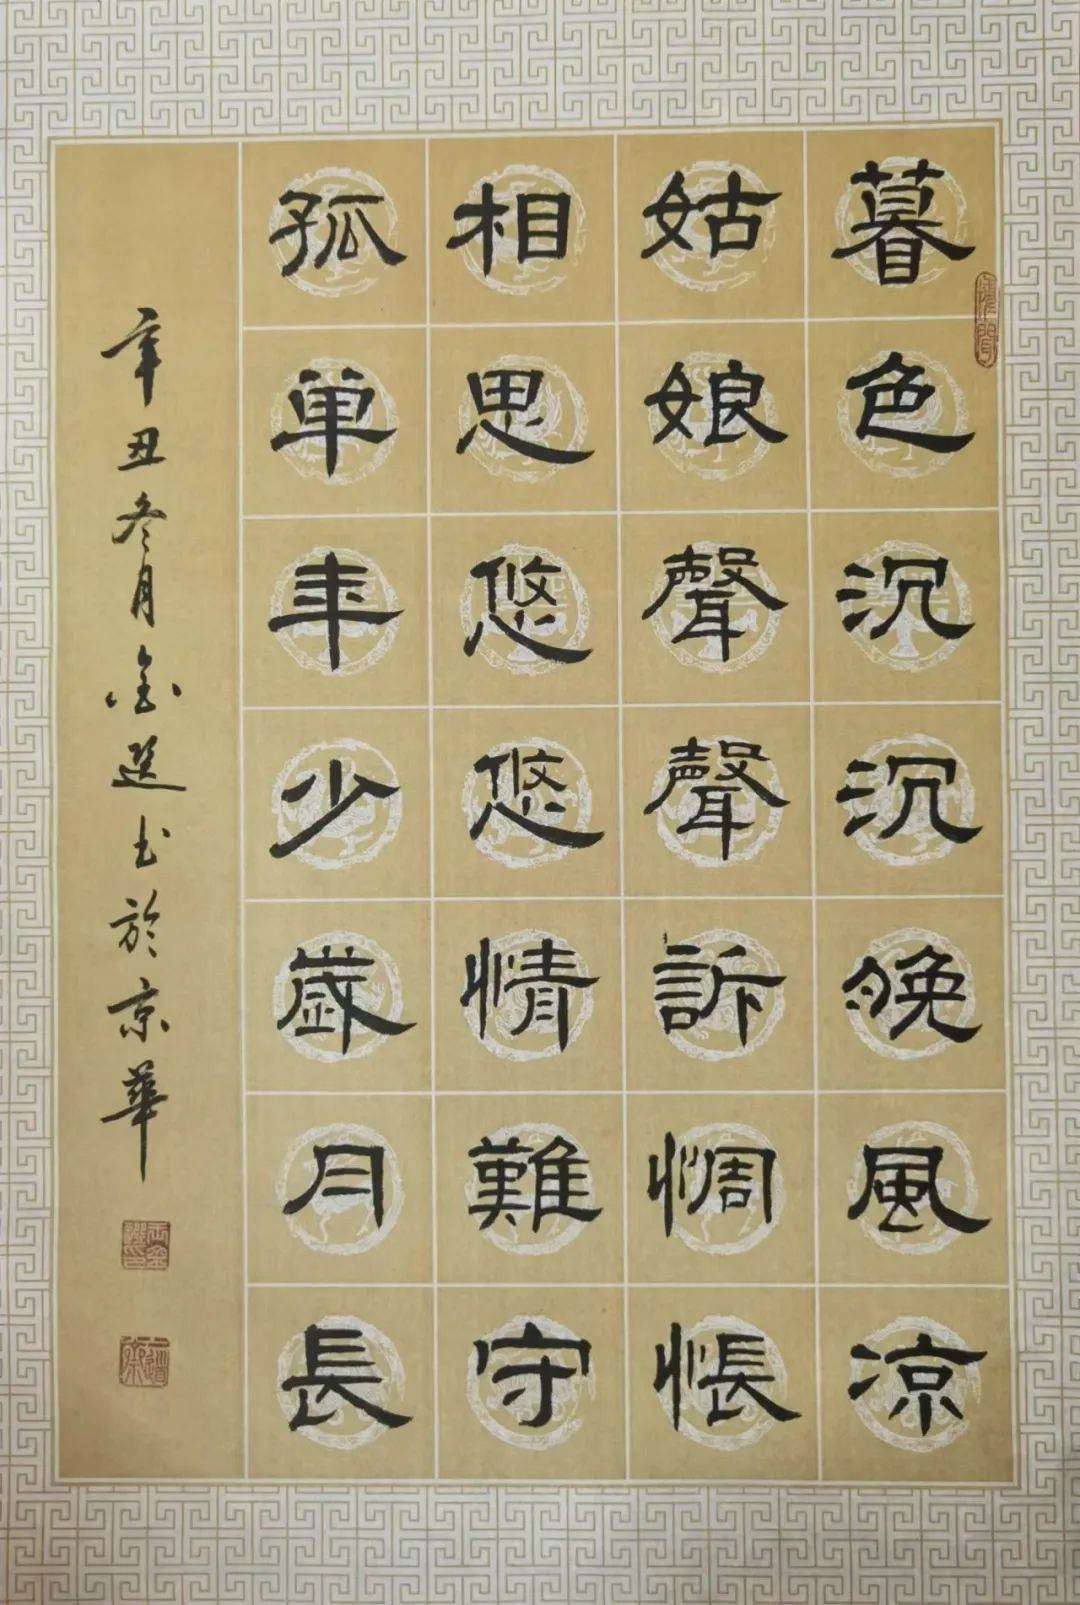 暮色沉沉晚風凉
姑娘聲聲訴惆悵
相思悠悠情難守
孤单年少歳月長
辛丑冬月金選书於京華